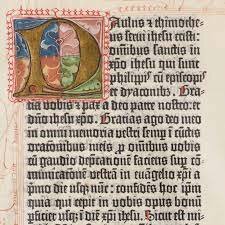 Paulus & thimothe⸗
serui ihesu cristi:
omnibus sanctis in
xpo ihesu qui sunt
philippis cū episcopis
et diaconibus. Gratia
vobis et pax a deo patre nostro: et
dño ihesu xpo. Gratias ago deo meo
in omni memoria vestri semꝑ ī cūctis
orationibus meis ꝓ omnibus vobis
cū gaudio deprecationē faciens sup cō⸗
municatione vestra in euāgelio xpi a
prima die usqꝫ nūc: confidēs hoc ipm̄
quia qui cepit in vobis opus bonū
ꝑficiet usqꝫ ī diē xpi ihesu. Sicut est mi⸗